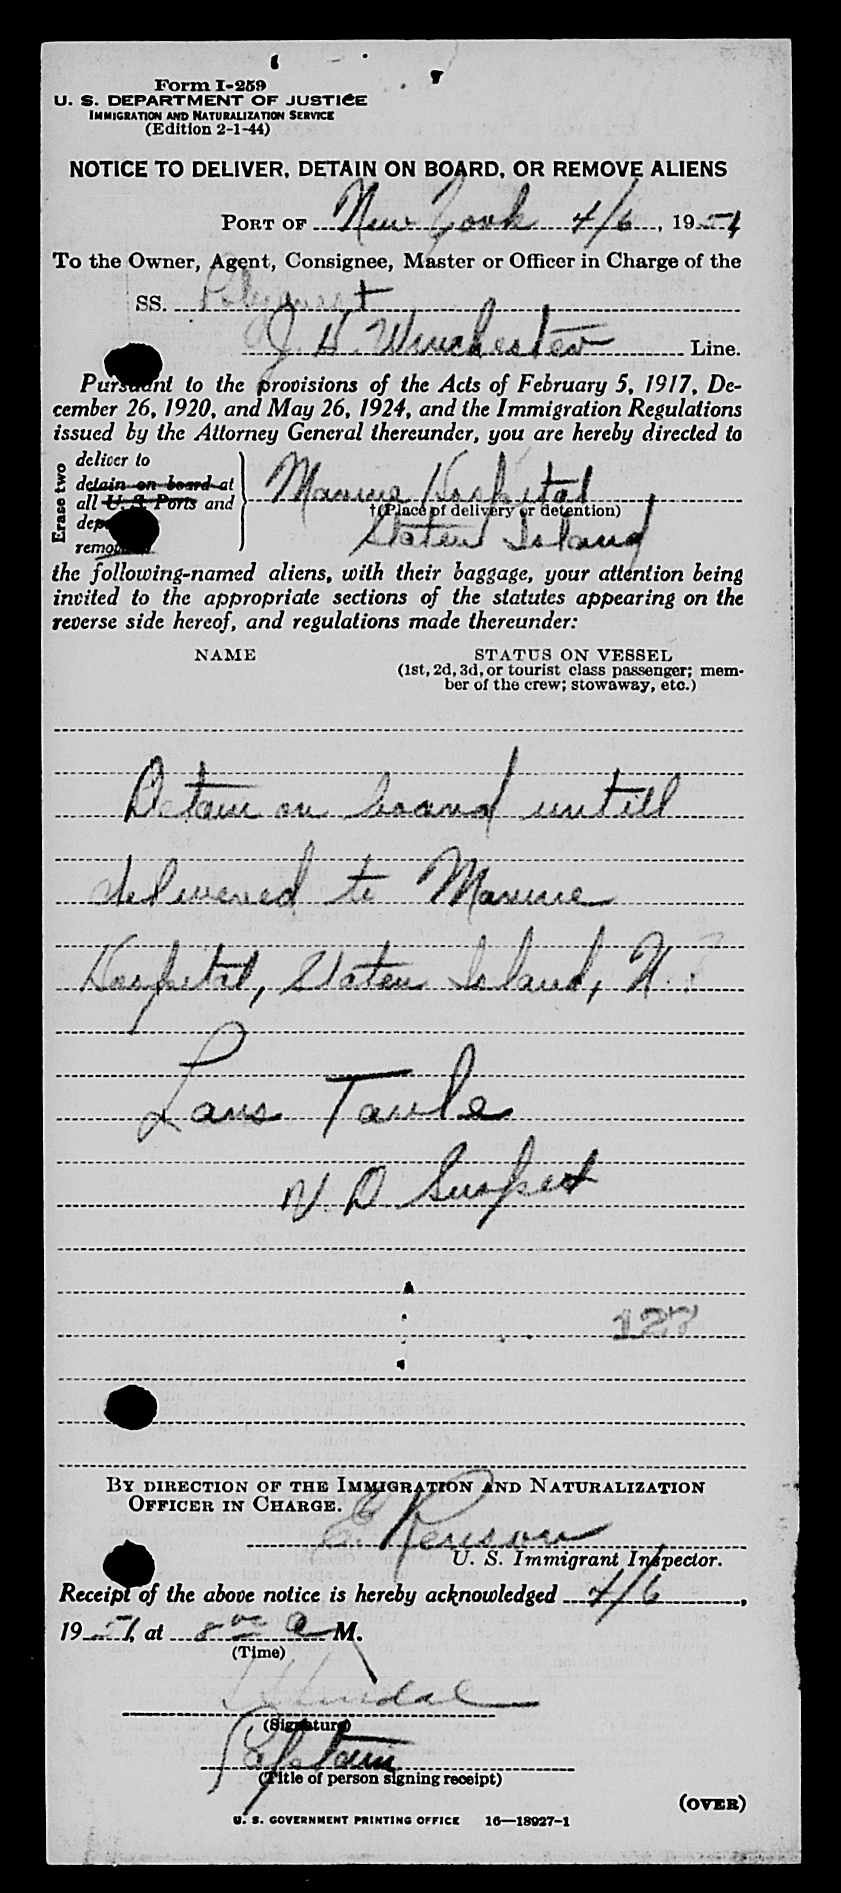 Form I-259
U. S. DEPARTMENT OF JUSTICE
IMMIGRATION AND NATURALIZATION SERVICE
(Edition 2-1-44)
NOTICE TO DELIVER, DETAIN ON BOARD, OR REMOVE ALIENS
PORT OF New York 4/6, 1951
To the Owner, Agent, Consignee, Master or Officer in Charge of the
SS.
J. H. Winchester Line.
Pursuant to the provisions of the Acts of February 5, 1917, De-
cember 26, 1920, and May 26, 1924, and the Immigration Regulations
issued by the Attorney General thereunder, you are hereby directed to
Erase two
deliver to
detain on board at
all U. S. Ports and
remo
Marine Hospital
†(Place of delivery or detention)
Staten Island
the following-named aliens, with their baggage, your attention being
invited to the appropriate sections of the statutes appearing on the
reverse side hereof, and regulations made thereunder:
NAME STATUS ON VESSEL
(1st, 2d, 3d, or tourist class passenger; mem-
ber of the crew; stowaway, etc.)
Detain on board untill
delivered to Marine
Hospital, Staten Island, N.
Lars Taule
V. D Suspect
127
BY DIRECTION OF THE IMMIGRATION AND NATURALIZATION
OFFICER IN CHARGE.
E.
U. S. Immigrant Inspector.
Receipt of the above notice is hereby acknowledged 4/6,
1951, at 8 00 a M.
(Time)
(Signature)
Captain
(Title of person signing receipt)
(OVER)
U. S. GOVERNMENT PRINTING OFFICE 16—18927-1